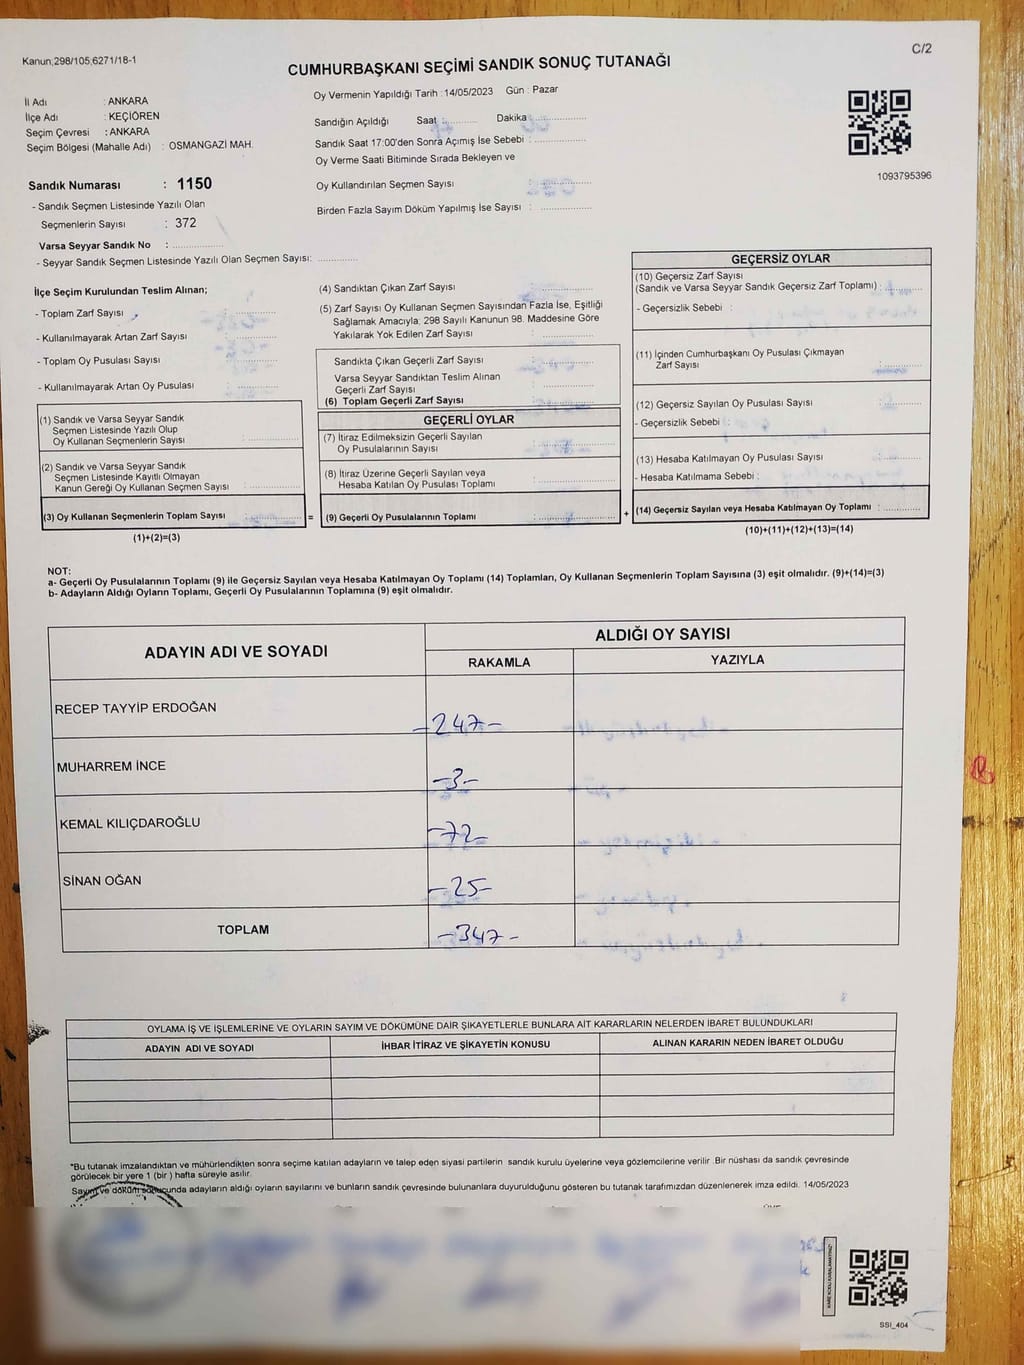 Kanun,298/105,6271/18-1
C/2
CUMHURBAŞKANI SEÇİMİ SANDIK SONUÇ TUTANAĞI
İl Adı : ANKARA
İlçe Adı : KEÇİÖREN
Seçim Çevresi : ANKARA
Seçim Bölgesi (Mahalle Adı) : OSMANGAZİ MAH.
Sandık Numarası : 1150
- Sandık Seçmen Listesinde Yazılı Olan
Seçmenlerin Sayısı : 372
Varsa Seyyar Sandık No : ..............
- Seyyar Sandık Seçmen Listesinde Yazılı Olan Seçmen Sayısı: ............
Oy Vermenin Yapıldığı Tarih :14/05/2023 Gün : Pazar
Sandığın Açıldığı Saat :.......... Dakika :..............
Sandık Saat 17:00'den Sonra Açımış İse Sebebi :..............
Oy Verme Saati Bitiminde Sırada Bekleyen ve
Oy Kullandırılan Seçmen Sayısı :..............
Birden Fazla Sayım Döküm Yapılmış İse Sayısı : ..............
1093795396
İlçe Seçim Kurulundan Teslim Alınan;
- Toplam Zarf Sayısı : ..............
- Kullanılmayarak Artan Zarf Sayısı : ..............
- Toplam Oy Pusulası Sayısı : ..............
- Kullanılmayarak Artan Oy Pusulası : ..............
(1) Sandık ve Varsa Seyyar Sandık
Seçmen Listesinde Yazılı Olup
Oy Kullanan Seçmenlerin Sayısı :..............
(2) Sandık ve Varsa Seyyar Sandık
Seçmen Listesinde Kayıtlı Olmayan
Kanun Gereği Oy Kullanan Seçmen Sayısı :..............
(3) Oy Kullanan Seçmenlerin Toplam Sayısı :..............
(1)+(2)=(3)
=
(4) Sandıktan Çıkan Zarf Sayısı :..............
(5) Zarf Sayısı Oy Kullanan Seçmen Sayısından Fazla İse, Eşitliği
Sağlamak Amacıyla; 298 Sayılı Kanunun 98. Maddesine Göre
Yakılarak Yok Edilen Zarf Sayısı :..............
Sandıkta Çıkan Geçerli Zarf Sayısı :..............
Varsa Seyyar Sandıktan Teslim Alınan
Geçerli Zarf Sayısı :..............
(6) Toplam Geçerli Zarf Sayısı :..............
GEÇERLİ OYLAR
(7) İtiraz Edilmeksizin Geçerli Sayılan
Oy Pusulalarının Sayısı :..............
(8) İtiraz Üzerine Geçerli Sayılan veya
Hesaba Katılan Oy Pusulası Toplamı :..............
(9) Geçerli Oy Pusulalarının Toplamı :..............
+
GEÇERSİZ OYLAR
(10) Geçersiz Zarf Sayısı
(Sandık ve Varsa Seyyar Sandık Geçersiz Zarf Toplamı) :..........
- Geçersizlik Sebebi :
(11) İçinden Cumhurbaşkanı Oy Pusulası Çıkmayan
Zarf Sayısı :..........
(12) Geçersiz Sayılan Oy Pusulası Sayısı :..........
- Geçersizlik Sebebi :
(13) Hesaba Katılmayan Oy Pusulası Sayısı :..........
- Hesaba Katılmama Sebebi :
(14) Geçersiz Sayılan veya Hesaba Katılmayan Oy Toplamı :..........
(10)+(11)+(12)+(13)=(14)
NOT:
a- Geçerli Oy Pusulalarının Toplamı (9) ile Geçersiz Sayılan veya Hesaba Katılmayan Oy Toplamı (14) Toplamları, Oy Kullanan Seçmenlerin Toplam Sayısına (3) eşit olmalıdır. (9)+(14)=(3)
b- Adayların Aldığı Oyların Toplamı, Geçerli Oy Pusulalarının Toplamına (9) eşit olmalıdır.
ADAYIN ADI VE SOYADI
ALDIĞI OY SAYISI
RAKAMLA YAZIYLA
RECEP TAYYİP ERDOĞAN -247-
MUHARREM İNCE -3-
KEMAL KILIÇDAROĞLU -72-
SİNAN OĞAN -25-
TOPLAM -347-
OYLAMA İŞ VE İŞLEMLERİNE VE OYLARIN SAYIM VE DÖKÜMÜNE DAİR ŞİKAYETLERLE BUNLARA AİT KARARLARIN NELERDEN İBARET BULUNDUKLARI
ADAYIN ADI VE SOYADI İHBAR İTİRAZ VE ŞİKAYETİN KONUSU ALINAN KARARIN NEDEN İBARET OLDUĞU
*Bu tutanak imzalandıktan ve mühürlendikten sonra seçime katılan adayların ve talep eden siyasi partilerin sandık kurulu üyelerine veya gözlemcilerine verilir .Bir nüshası da sandık çevresinde
görülecek bir yere 1 (bir ) hafta süreyle asılır.
Sayım ve döküm sonucunda adayların aldığı oyların sayılarını ve bunların sandık çevresinde bulunanlara duyurulduğunu gösteren bu tutanak tarafımızdan düzenlenerek imza edildi. 14/05/2023
SSI_404